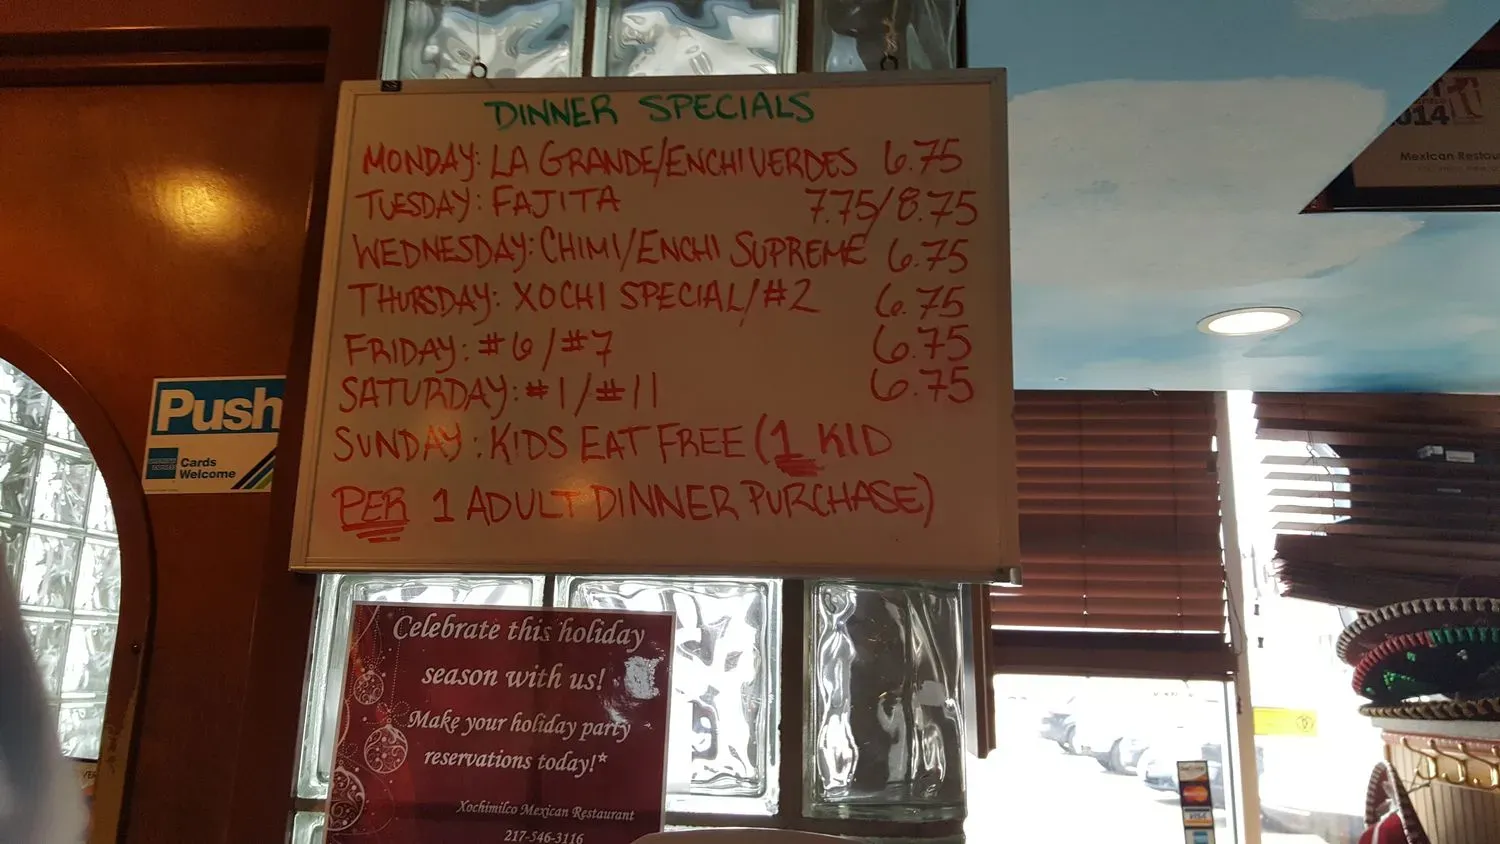 DINNER SPECIALS
MONDAY: LA GRANDE/ENCHIVERDES 6.75
TUESDAY: FAJITA 7.75/8.75
WEDNESDAY: CHIMI/ENCHI SUPREME 6.75
THURSDAY: XOCHI SPECIAL/#2 6.75
FRIDAY: #6/#7 6.75
SATURDAY: #1/#11 6.75
SUNDAY: KIDS EAT FREE (1 KID
PER 1 ADULT DINNER PURCHASE)
Push
Cards
Welcome
Celebrate this holiday
season with us!
Make your holiday party
reservations today!*
Xochimilco Mexican Restaurant
217-546-3116
2014
Mexican Restau